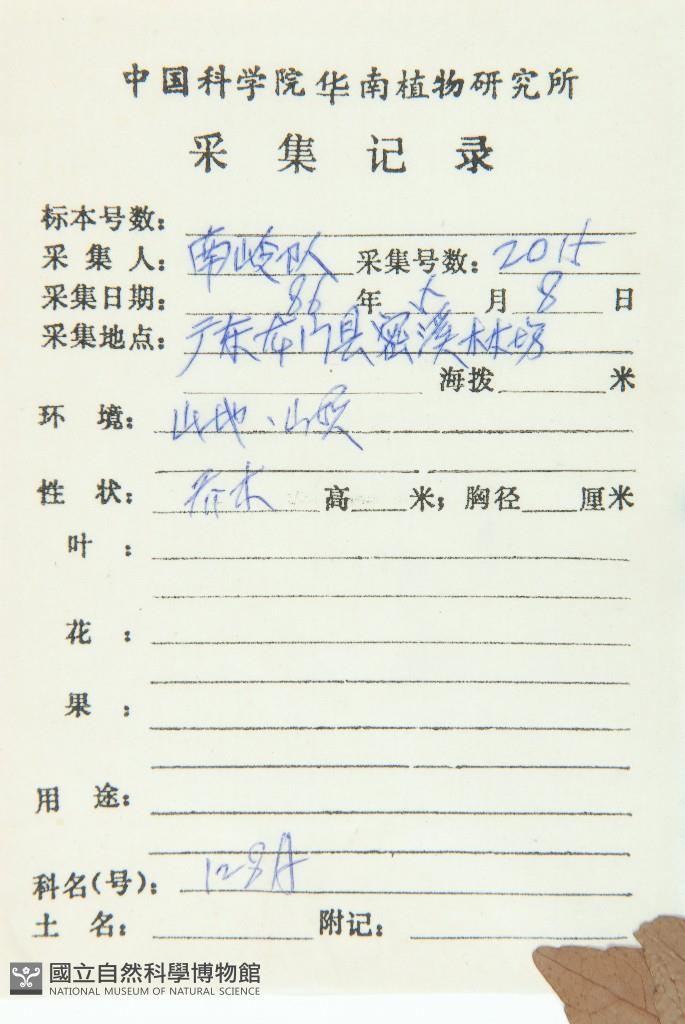 中国科学院华南植物研究所
采集记录
标本号数：
采集人：南岭队 采集号数：2015
采集日期：86年5月8日
采集地点：广东龙门县密溪林场
海拨 米
环境：山地、山坡
性状：乔木 高 米；胸径 厘米
叶：
花：
果：
用途：
科名(号)：128A
土名： 附记：
國立自然科學博物館
NATIONAL MUSEUM OF NATURAL SCIENCE